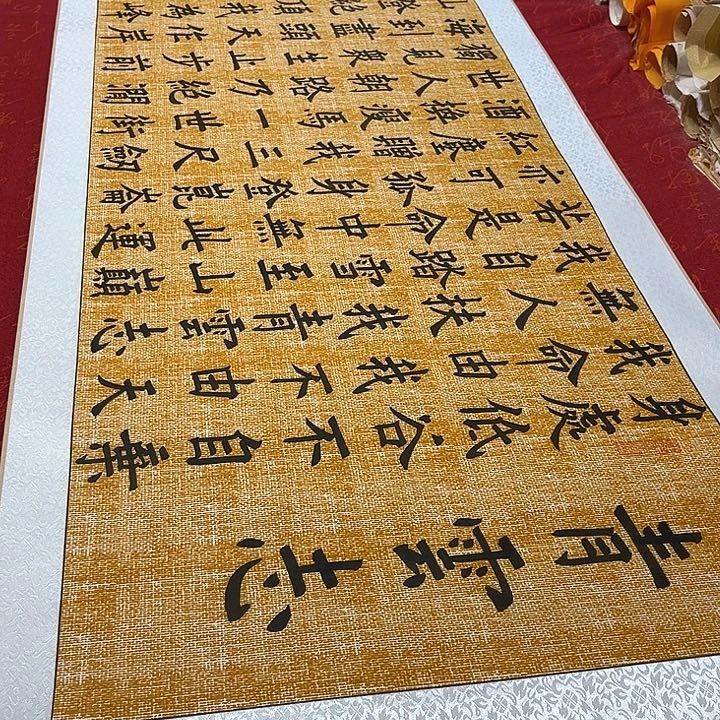 青雲志
身處低谷不自棄
我命由我不由天
無人扶我青雲志
我自踏雪至山巔
若是命中無此運
亦可孤身登崑崙
紅塵贈我三尺劍
酒換瘦馬一世街
世人朝路乃絕明
獨見衆生止步前
海到盡頭天作岸
山登絕頂我為峰